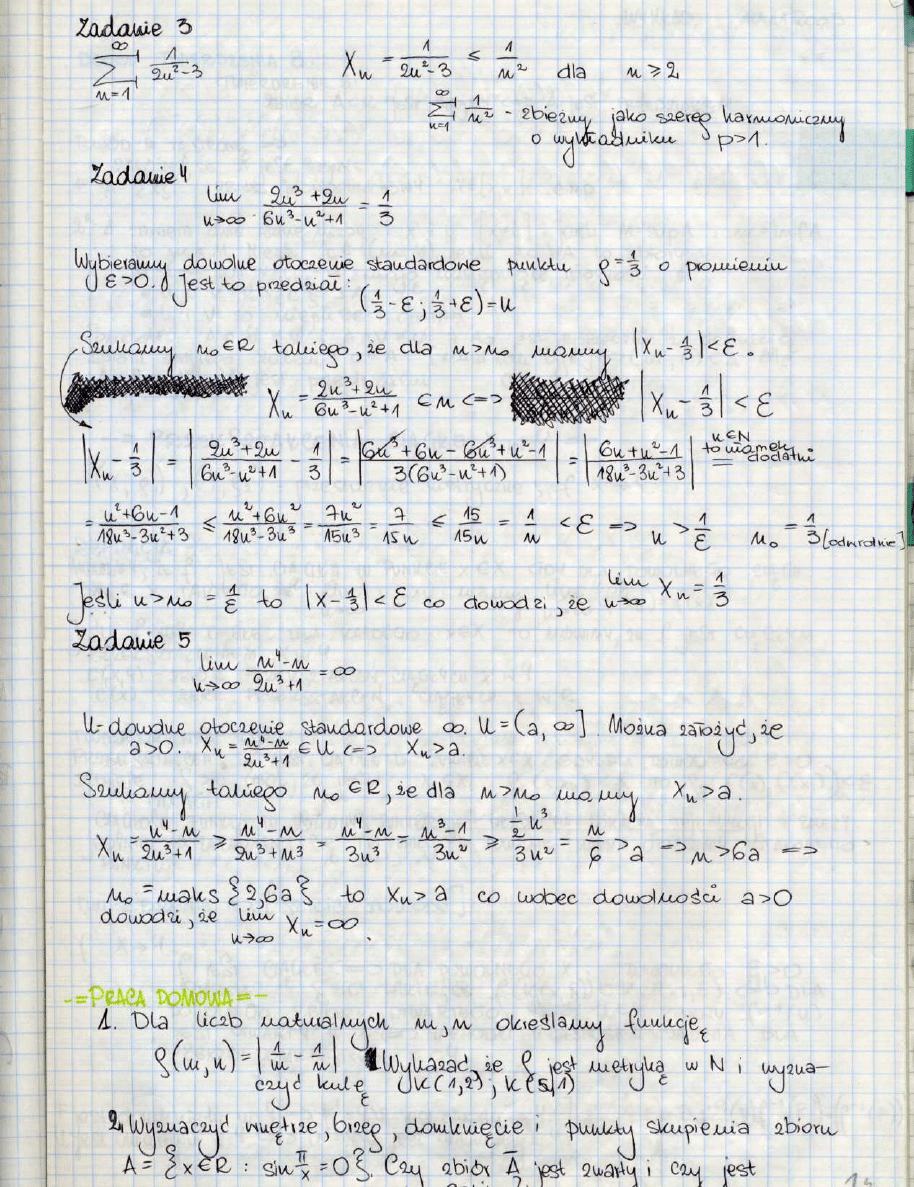 Zadanie 3
∞∑n=1 1/(2n²-3)    Xn = 1/(2n²-3) ≤ 1/n² dla n ≥ 2
∞∑n=1 1/n² - zbieżny jako szereg harmoniczny
o wykładniku p>1.
Zadanie 4
lim n→∞ (2n³+2n)/(6n³-n²+1) = 1/3
Wybieramy dowolne otoczenie standardowe punktu ρ=1/3 o promieniu
ε>0. Jest to przedział:
(1/3-ε; 1/3+ε)=U
Szukamy n₀∈R takiego, że dla n>n₀ mamy |Xn-1/3|<ε.
Xn = (2n³+2n)/(6n³-n²+1) ∈ U <=> |Xn-1/3| < ε
|Xn-1/3| = |(2n³+2n)/(6n³-n²+1) - 1/3| = |(6n³+6n-6n³+n²-1)/(3(6n³-n²+1))| = |(6n+n²-1)/(18n³-3n²+3)| n∈N to mianek dodatni
= (n²+6n-1)/(18n³-3n²+3) ≤ (n²+6n²)/(18n³-3n³) = 7n²/15n³ = 7/15n ≤ 15/15n = 1/n < ε => n > 1/ε    n₀ = 1/3 [odwrotnie]
Jeśli n>n₀ = 1/ε to |X-1/3|<ε co dowodzi, że lim n→∞ Xn = 1/3
Zadanie 5
lim n→∞ (n⁴-n)/(2n³+1) = ∞
U-dowolne otoczenie standardowe ∞. U=(a, ∞]. Można założyć, że
a>0. Xn = (n⁴-n)/(2n³+1) ∈ U <=> Xn>a.
Szukamy takiego n₀∈R, że dla n>n₀ mamy Xn>a.
Xn = (n⁴-n)/(2n³+1) ≥ (n⁴-n)/(2n³+n³) = (n⁴-n)/3n³ = (n³-1)/3n² ≥ (1/2 n³)/3n² = n/6 > a => n>6a =>
n₀ = maks {2,6a} to Xn>a co wobec dowolności a>0
dowodzi, że lim n→∞ Xn=∞.
-=PRACA DOMOWA=-
1. Dla liczb naturalnych m,n określamy funkcję
ρ(m,n)=|1/m - 1/n| Wykazać, że ρ jest metryką w N i wyzna-
czyć kulę K(1,2), K(5,1)
2. Wyznaczyć wnętrze, brzeg, domknięcie i punkty skupienia zbioru
A = {x∈R : sin π/x = 0}. Czy zbiór A̅ jest zwarty i czy jest